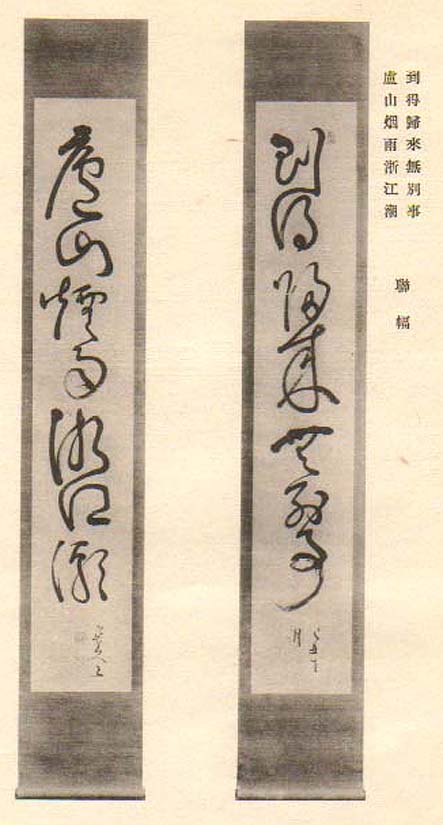 到得歸來無別事
盧山烟雨浙江潮
聯幅
到得歸來無別事
廬山煙雨浙江潮